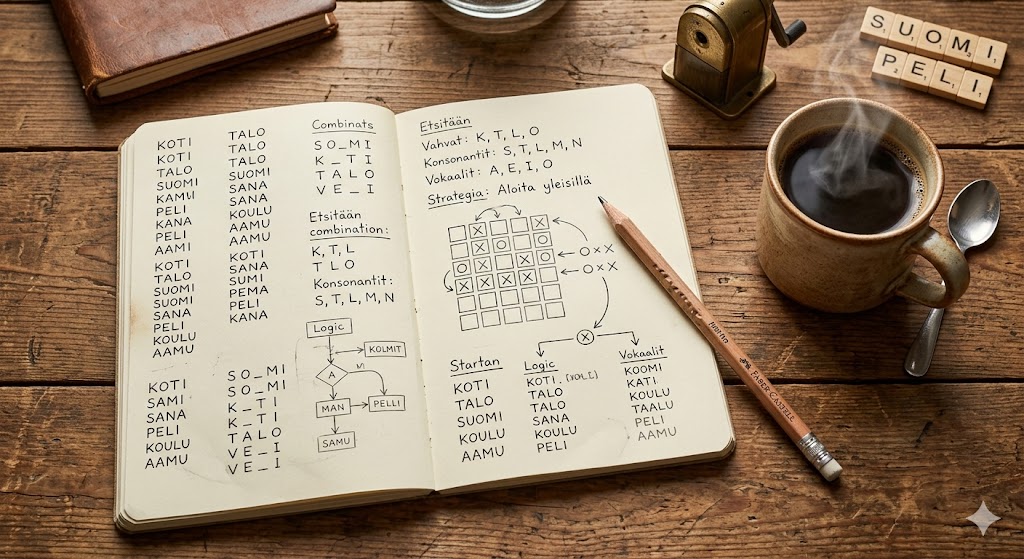 SUOMI
PELI
KOTI
KOTI
TALO
SUOMI
KAMUI
PELI
KANA
PELI
AAMI
KOTI
TALO
SUOMI
SUOMI
SANA
PELI
KOULU
AAMU
TALO
TALO
TALO
SUOMI
SANA
SANA
KOULU
AAMU
AAMU
KOTI
SANA
SUMI
PEMA
PELI
KANA
KOTI
SAMI
SANA
PELI
KOULU
AAMU
SO_MI
SO_MI
K_TI
K_TI
TALO
VE_I
VE_I
Combinats
SO_MI
K_TI
TALO
VE_I
Etsitään
combination:
K, T, L
T L O
Konsonantit:
S, T, L, M, N
Logic
KOLMIT
A
MAN
PELLI
SAMU
Etsitään
Vahvat: K, T, L, O
Konsonantit: S, T, L, M, N
Vokaalit: A, E, I, O
Strategia: Aloita yleisillä
O X X
O X X
Startan
KOTI
TALO
SUOMI
KOULU
AAMU
Logic
KOTI.
TALO
TALO
SANA
KOULU
PELI
Vokaalit
KOOMI
KATI
KOULU
TAALU
PELI
AAMU
FABER-CASTELL